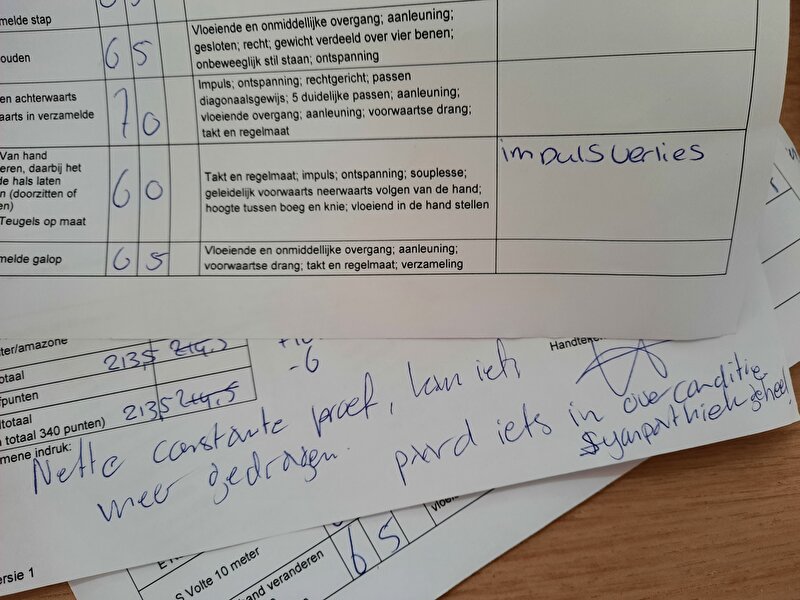 melde stap
ouden
6 5
Vloeiende en onmiddellijke overgang; aanleuning;
gesloten; recht; gewicht verdeeld over vier benen;
onbeweeglijk stil staan; ontspanning
en achterwaarts
aarts in verzamelde
7 0
Impuls; ontspanning; rechtgericht; passen
diagonaalsgewijs; 5 duidelijke passen; aanleuning;
vloeiende overgang; aanleuning; voorwaartse drang;
takt en regelmaat
Van hand
eren, daarbij het
de hals laten
n (doorzitten of
en)
Teugels op maat
6 0
Takt en regelmaat; impuls; ontspanning; souplesse;
geleidelijk voorwaarts neerwaarts volgen van de hand;
hoogte tussen boeg en knie; vloeiend in de hand stellen
impulsverlies
melde galop
6 5
Vloeiende en onmiddellijke overgang; aanleuning;
voorwaartse drang; takt en regelmaat; verzameling
ter/amazone
otaal
213,5 214,5
-6
fpunten
totaal
213,5 214,5
totaal 340 punten)
mene indruk:
Handteke
Nette constante proef, kan iets
meer gedragen. paard iets in overconditie
Sympathiek geheel!
ersie 1
S Volte 10 meter
and veranderen
6 5
vloei